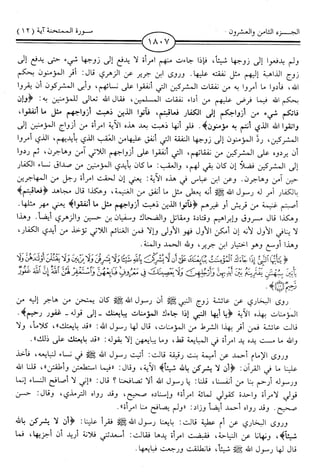 الجزء الثامن والعشرون
١٨٠٧
سورة الممتحنة آية (١٢)
ولم يدفعوا إلى زوجها شيئاً، فإذا جاءت منهم امرأة لا يدفع إلى زوجها شيء حتى يدفع إلى
زوج الذاهبة إليهم مثل نفقته عليها. وروى ابن جرير عن الزهري قال: أقر المؤمنون بحكم
الله، فأدوا ما أمروا به من نفقات المشركين التي أنفقوا على نسائهم، وأبى المشركون أن يقروا
بحكم الله فيما فرض عليهم من أداء نفقات المسلمين، فقال الله تعالى للمؤمنين به: ﴿وإن
فاتكم شيء من أزواجكم إلى الكفار فعاقبتم، فآتوا الذين ذهبت أزواجهم مثل ما أنفقوا،
واتقوا الله الذي أنتم به مؤمنون﴾. فلو أنها ذهبت بعد هذه الآية امرأة من أزواج المؤمنين إلى
المشركين، ردَّ المؤمنون إلى زوجها النفقة التي أنفق عليها من العقب الذي بأيديهم، الذي أمروا
أن يردوه على المشركين من نفقاتهم، التي أنفقوا على أزواجهم اللاتي آمنّ وهاجرن، ثم ردوا
إلى المشركين فضلاً إن كان بقي لهم، والعقب: ما كان بأيدي المؤمنين من صداق نساء الكفار
حين آمن وهاجرن. وعن ابن عباس في هذه الآية: يعني إن لحقت امرأة رجل من المهاجرين
بالكفار أمر له رسول الله ﷺ أنه يعطى مثل ما أنفق من الغنيمة، وهكذا قال مجاهد ﴿فعاقبتم﴾
أصبتم غنيمة من قريش أو غيرهم ﴿فآتوا الذين ذهبت أزواجهم مثل ما أنفقوا﴾ يعني مهر مثلها.
وهكذا قال مسروق وإبراهيم وقتادة ومقاتل والضحاك وسفيان بن حسين والزهري أيضاً. وهذا
لا ينافي الأول لأنه إن أمكن الأول فهو الأولى وإلا فمن الغنائم اللاتي تؤخذ من أيدي الكفار،
وهذا أوسع وهو اختيار ابن جرير، ولله الحمد والمنة.
﴿يَٰٓأَيُّهَا ٱلنَّبِيُّ إِذَا جَآءَكَ ٱلْمُؤْمِنَٰتُ يُبَايِعْنَكَ عَلَىٰٓ أَن لَّا يُشْرِكْنَ بِٱللَّهِ شَيْـًٔا وَلَا يَسْرِقْنَ وَلَا يَزْنِينَ وَلَا يَقْتُلْنَ أَوْلَٰدَهُنَّ وَلَا
يَأْتِينَ بِبُهْتَٰنٍ يَفْتَرِينَهُۥ بَيْنَ أَيْدِيهِنَّ وَأَرْجُلِهِنَّ وَلَا يَعْصِينَكَ فِى مَعْرُوفٍ فَبَايِعْهُنَّ وَٱسْتَغْفِرْ لَهُنَّ ٱللَّهَ إِنَّ ٱللَّهَ غَفُورٌ
رَّحِيمٌ﴾.
روى البخاري عن عائشة زوج النبي ﷺ أن رسول الله ﷺ كان يمتحن من هاجر إليه من
المؤمنات بهذه الآية ﴿يا أيها النبي إذا جاءك المؤمنات يبايعنك - إلى قوله - غفور رحيم﴾.
قالت عائشة فمن أقر بهذا الشرط من المؤمنات، قال لها رسول الله: «قد بايعتك»، كلاماً، ولا
والله ما مست يده يد امرأة في المبايعة قط، وما يبايعهن إلا بقوله: «قد بايعتك على ذلك».
وروى الإمام أحمد عن أميمة بنت رقيقة قالت: أتيت رسول الله ﷺ في نساء لنبايعه، فأخذ
علينا ما في القرآن: ﴿أن لا يشركن بالله شيئاً﴾ الآية، وقال: «فيما استطعتن وأطقتن»، قلنا: الله
ورسوله أرحم بنا من أنفسنا، قلنا: يا رسول الله ألا تصافحنا؟ قال: «إني لا أصافح النساء إنما
قولي لامرأة واحدة كقولي لمائة امرأة» وإسناده صحيح، وقد رواه الترمذي، وقال: حسن
صحيح. وقد رواه أحمد أيضاً وزاد: «ولم يصافح منا امرأة».
وروى البخاري عن أم عطية قالت: بايعنا رسول الله ﷺ فقرأ علينا: ﴿أن لا يشركن بالله
شيئاً﴾، ونهانا عن النياحة، فقبضت امرأة يدها فقالت: أسعدتني فلانة أريد أن أجزيها، فما
قال لها رسول الله ﷺ شيئاً، فانطلقت ورجعت فبايعها.